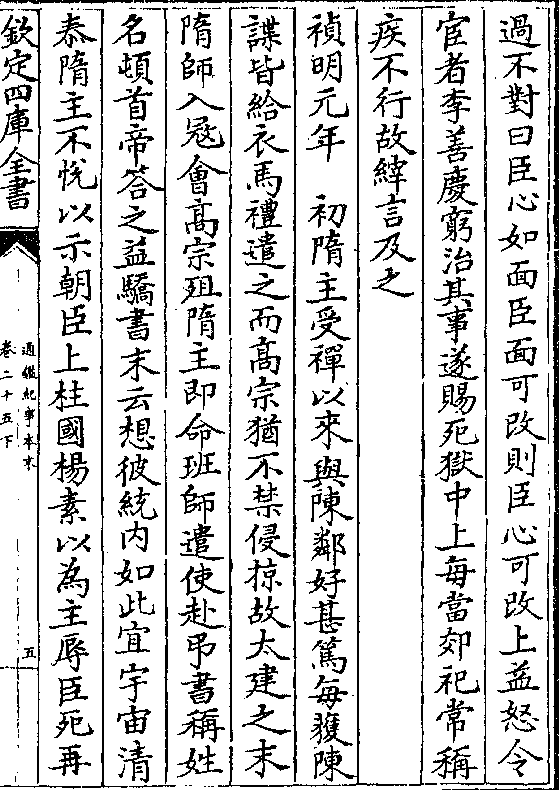 過不對曰臣心如面臣面可改則臣心可改上益怒令
宦者李善慶窮治其事遂賜死獄中上每當郊祀常稱
疾不行故縡言及之
禎明元年　初隋主受禪以來與陳鄰好甚篤每獲陳
諜皆給衣馬禮遣之而髙宗猶不禁侵掠故太建之末
隋師入冦會髙宗殂隋主即命班師遣使赴弔書稱姓
名頓首帝答之益驕書末云想彼統内如此宜宇宙清
泰隋主不悅以示朝臣上柱國楊素以為主辱臣死再
欽定四庫全書
通鑑紀事本末
卷二十五下
五